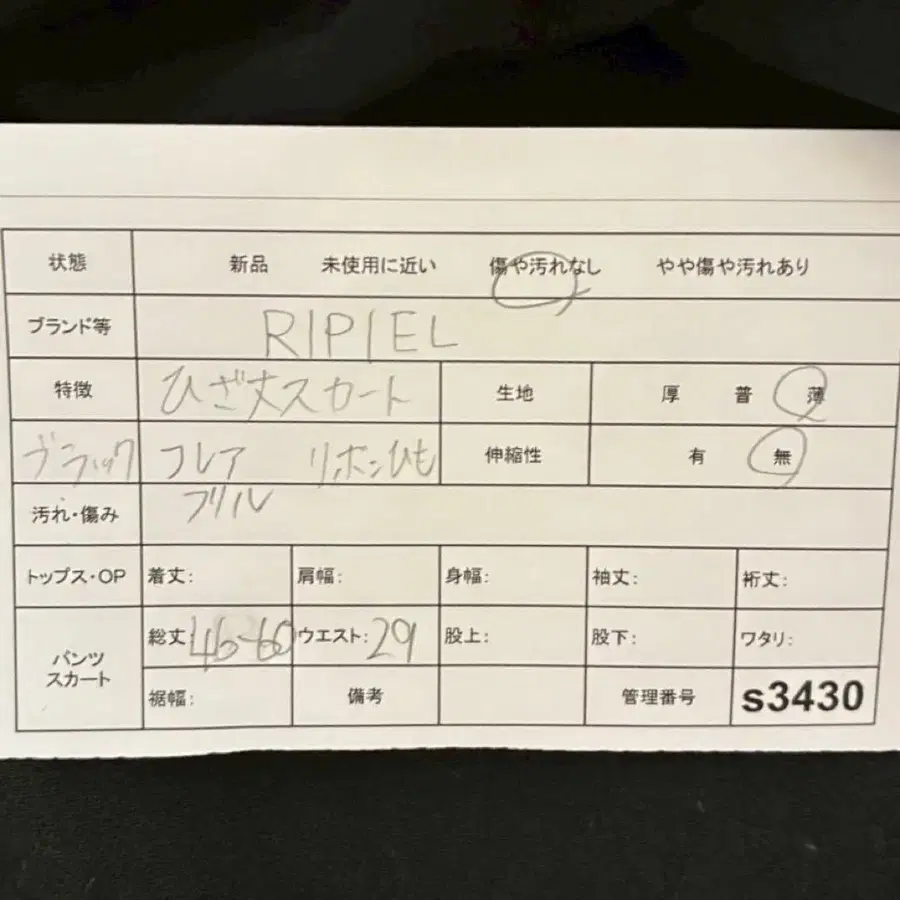 状態 新品 未使用に近い 傷や汚れなし やや傷や汚れあり
ブランド等 RIPIEL
特徴 ひざ丈スカート 生地 厚 普 薄
ブラック フレア リボンひも 伸縮性 有 無
フリル
汚れ・傷み
トップス・OP 着丈: 肩幅: 身幅: 袖丈: 裄丈:
パンツ
スカート
総丈: 46-60 ウエスト: 29 股上: 股下: ワタリ:
裾幅: 備考 管理番号 s3430